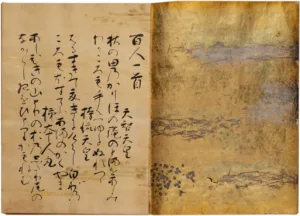 百人一首
天智天皇
秋の田のかりほの庵の苫をあらみ
わかころも手は露にぬれつつ
持統天皇
春すきて夏きにけらし白妙の
ころもほすてふあまのかく山
柿本人丸
あし曳の山鳥の尾のしたり尾の
なかなかし夜をひとりかもねむ